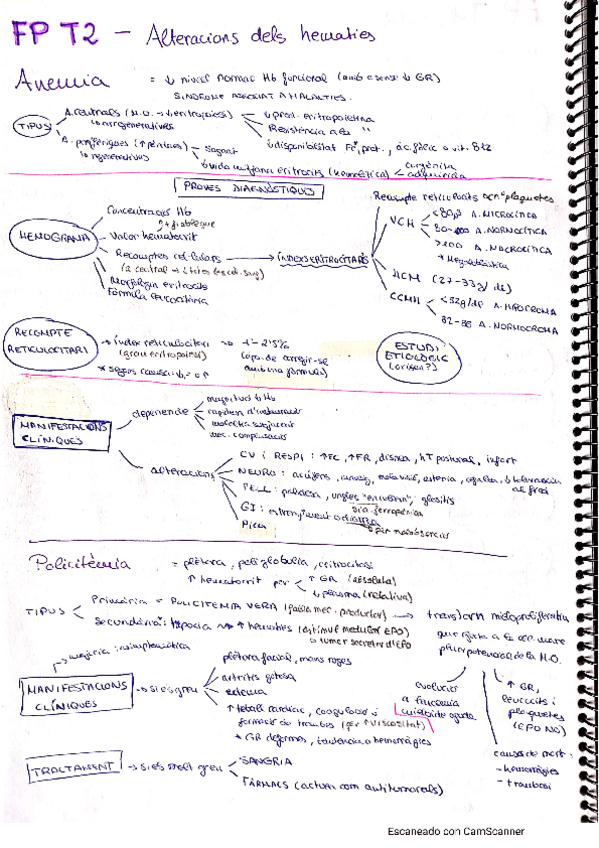 FP T2 - Alteracions dels hematies
Anemia = ↓ nivell normal Hb funcional (amb o sense ↓ GR)
SINDROME ASSOCIAT A MALALTIES.
TIPUS
A. centrals (M.O. → ↓ eritropoiesi)
↳ arregeneratives
↓ prod. eritropoietina
Resistència a la "
↓ disponibilitat Fe, prot., àc. fòlic o vit. B12
A. perifèriques (↑ pèrdues)
↳ regeneratives
Sagnat
↓ vida mitjana eritrocits (hemolítica)
congènita
adquirida
PROVES DIAGNÒSTIQUES
HEMOGRAMA
Concentració Hb
Valor hematocrit
Recomptes cel·lulars
Morfologia eritrocits
Fórmula leucocitària
ÍNDEXS ERITROCITARIS
Recompte reticulocits plaquetes
VCM
< 80 A. MICROCÍTICA
80-100 A. NORMOCÍTICA
> 100 A. MACROCÍTICA
* Megaloblàstica
HCM (27-33g/dL)
CCMH
< 32g/dL A. HIPOCROMA
32-36 A. NORMOCROMA
RECOMPTE RETICULOCITARI
→ Índex reticulocitari → 1-2'5%
(grau eritropoiesi)
(cps. de corregir-se amb una fórmula)
ESTUDI ETIOLÒGIC (origen?)
MANIFESTACIONS CLÍNIQUES
depenen de
magnitud ↓ Hb
rapidesa d'instauració
malaltia subjacent
mec. compensació
alteracions
CV i RESPI: ↑FC, ↑FR, disnea, hT postural, infart
NEURO: acúfens, mareig, astenia, cefalea, ↓ tolerància al fred
PELL: pal·lidesa, ungles "en cullera", glositis
GI: estrenyiment o diarrea
sia. ferropènica
↳ per malabsorció
Pica
Policitèmia = plètora, poliglobulia, eritrocitosi
↑ hematocrit per
↑ GR (absoluta)
↓ plasma (relativa)
TIPUS
Primària = POLICITEMIA VERA → transtorn mieloproliferatiu
que afecta a la cèl. mare
pluripotencial de la M.O.
Secundària: hipòxia → ↑ hematies (estímul medul·lar EPO)
↳ tumor secretor d'EPO
↳ majoria: asimptomàtica
MANIFESTACIONS CLÍNIQUES → si és greu
plètora facial, mans roges
artritis gotosa
edema
↑ treball cardíac, coagulació i
formació de trombes (per ↑ viscositat)
* GR deformes, tendència a hemorràgies
evolució
a leucemia
mieloide aguda
↑ GR,
leucocits i
plaquetes
(EPO NO)
causes de mort:
- hemorràgies
- trombosi
TRACTAMENT → si és molt greu
SANGRIA
FÀRMACS (actuen com antitumorals)
Escaneado con CamScanner